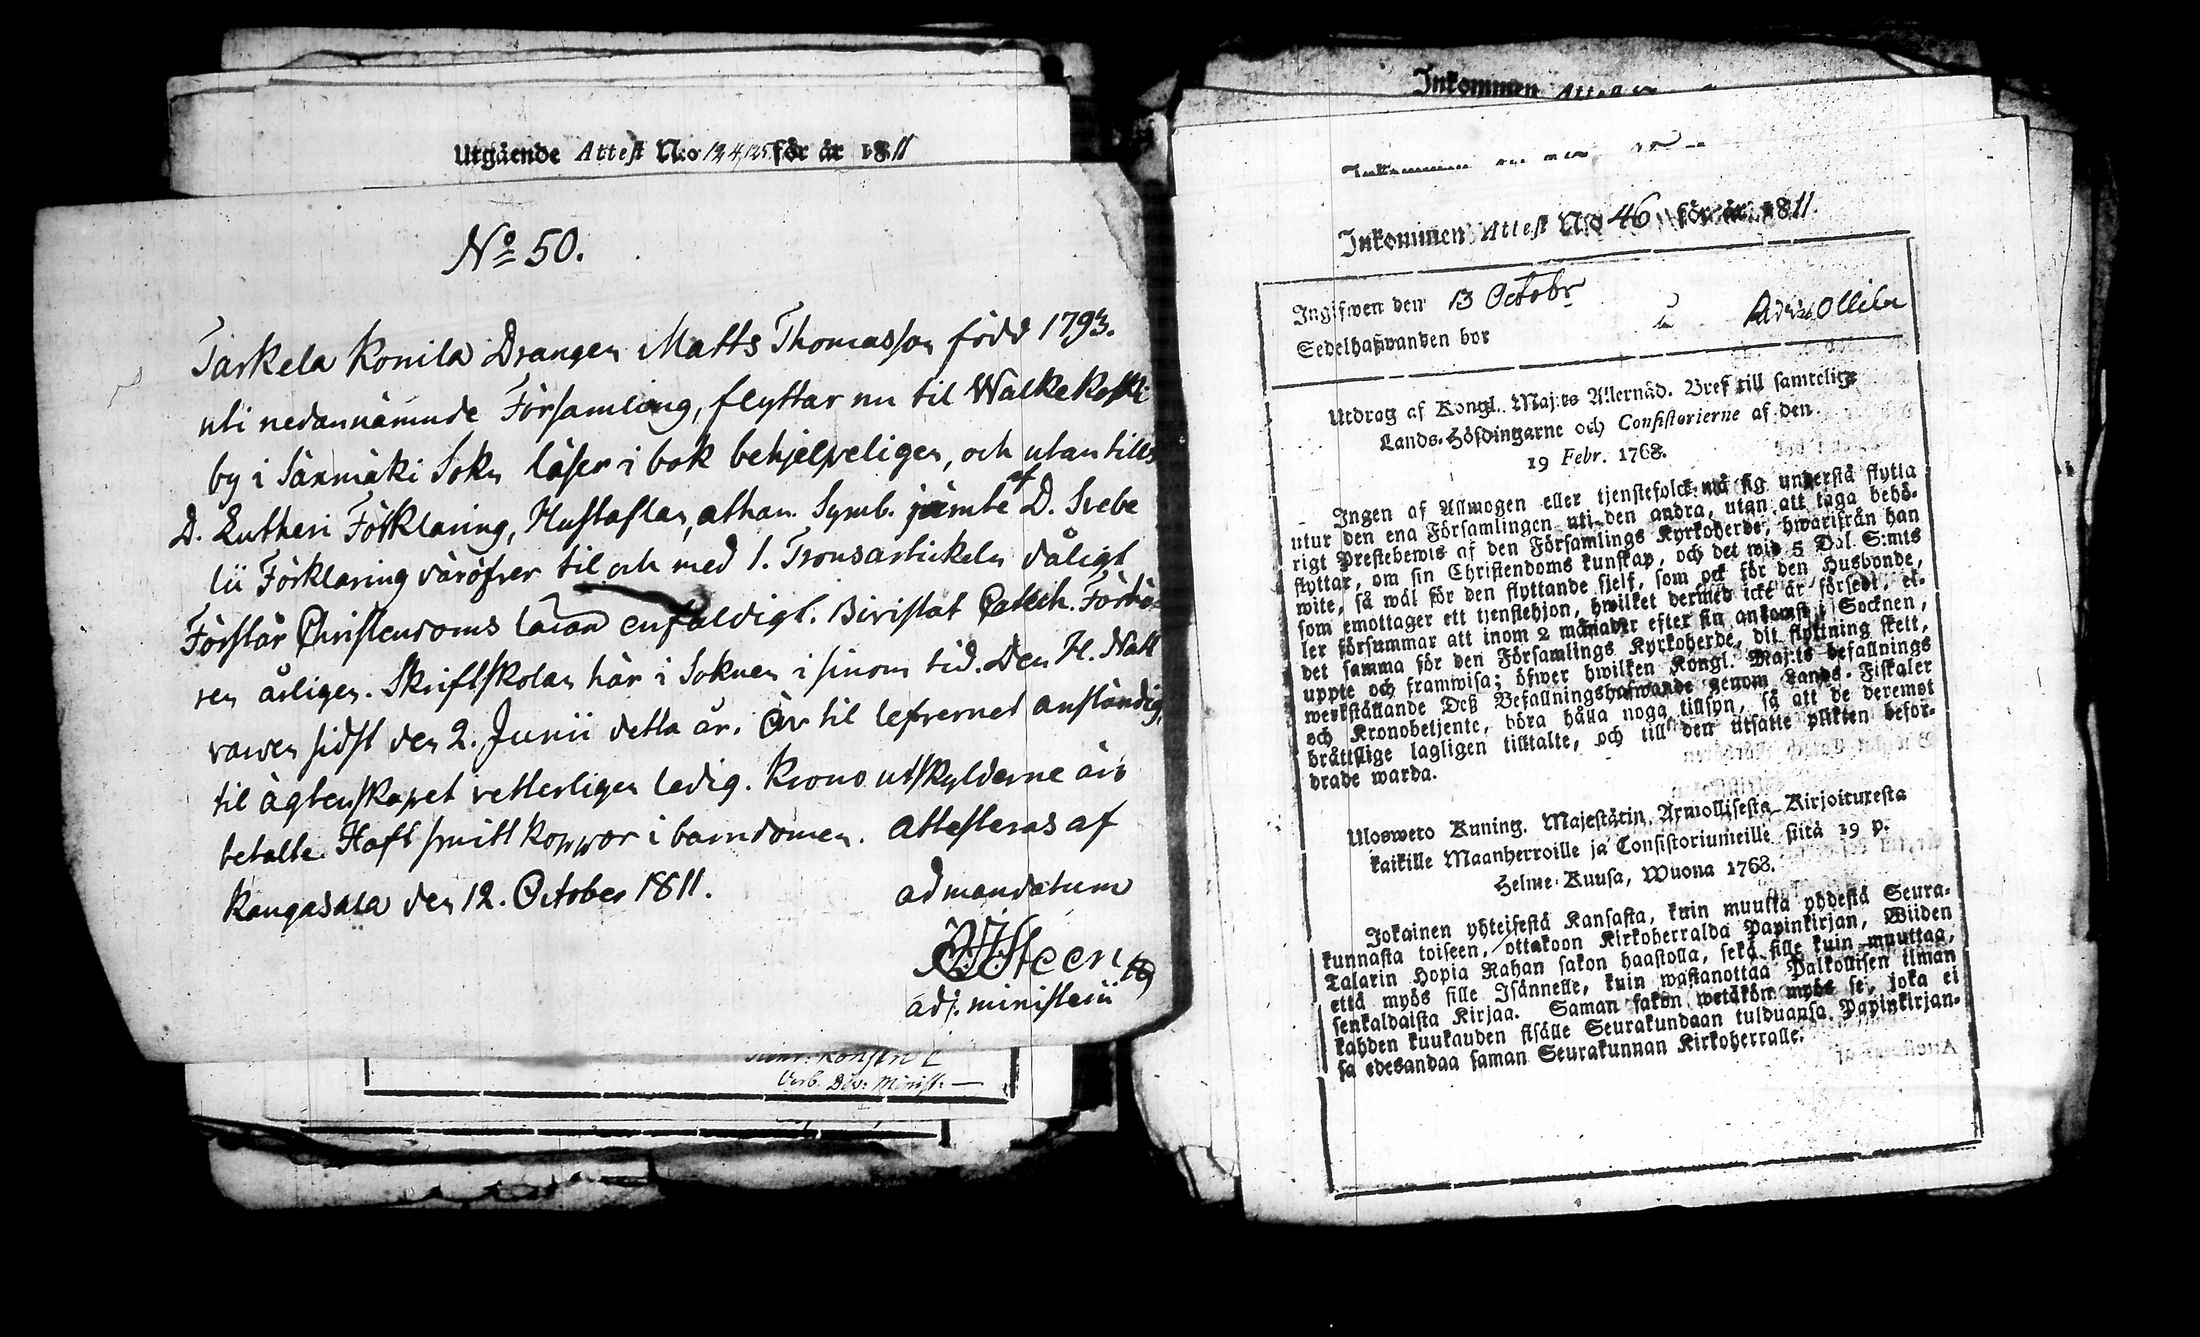 Utgående Attest N:o 124,125 för år 1811
No 50.
Tarkela Komila Drängen Matts Thomasson född 1793.
uti nedannämnde Församling, flyttar nu til Walkekoski
by i Säxmäki Sokn läser i bok behjelpeligen, och utantill
D. Lutheri Förklaring, Hustaflan, athan. Symb. jämte D. Svebe
lii Förklaring däröfver til och med 1. Trons artikeln dåligt
Förstår Christendoms läran enfaldigt. Bivistat Catech. Förhö-
ren årligen. Skriftskolan här i Soknen i sinom tid. Den H. Natt
varden sidst den 2. Junii detta år. Är til lefvernet anständig,
til ägtenskapet vetterligen ledig. Krono utskylderne äro
betalte. Haft smittkoppor i barndomen. attesteras af
Kangasala den 12. October 1811.
ad mandatum
Steen
adj. ministerii
Verb. Div: Minist:
Inkommen Attest
Inkommen
Inkommen Attest N:o 46 för år 1811.
Ingifwen den 13 Octobr
Sedelhafwanden bor
Utdrag af Kongl. Maj:ts Allernåd. Bref till samtelige
Lands-Höfdingarne och Consistorierne af den
19 Febr. 1768.
Ingen af Allmogen eller tjenstefolck må sig understå flytta
utur den ena Församlingen uti den andra, utan att taga behö-
rigt Prestebewis af den Församlings Kyrkoherde, hwarifrån han
flyttar, om sin Christendoms kunskap, och det wid 5 Dal. S:mts
wite, så wäl för den flyttande sjelf, som ock för den Husbonde,
som emottager ett tjenstehjon, hwilket dermed icke är försedt, el-
ler försummar att inom 2 månader efter sin ankomst i Socknen,
det samma för den Församlings Kyrkoherde, dit flyttning skett,
uppte och framwisa; öfwer hwilken Kongl. Maj:ts befallnings
werkställande Deß Befallningshafwande genom Lands-Fiskaler
och Kronobetjente, böra hålla noga tillsyn, så att de deremot
bråttslige lagligen tilltalte, och till den utsatte plikten befor-
drade warda.
Ulosweto Kuning. Majestätin Armollisesta Kirjoituxesta
kaikille Maanherroille ja Consistoriumeille siitä 19 p.
Helme-Kuusa, Wuona 1768.
Jokainen yhteisestä Kansasta, kuin muutta yhdestä Seura-
kunnasta toiseen, ottakoon Kirkoherralda Papinkirjan, Wiiden
Talarin Hopia Rahan sakon haastolla, sekä sille kuin muuttaa,
että myös sille Isännelle, kuin wastanottaa Palkollisen ilman
senkaldaista Kirjaa. Saman sakon wetäkön myös se, joka ei
kahden kuukauden sisälle Seurakundaan tulduansa Papinkirjan-
sa edesandaa saman Seurakunnan Kirkoherralle.